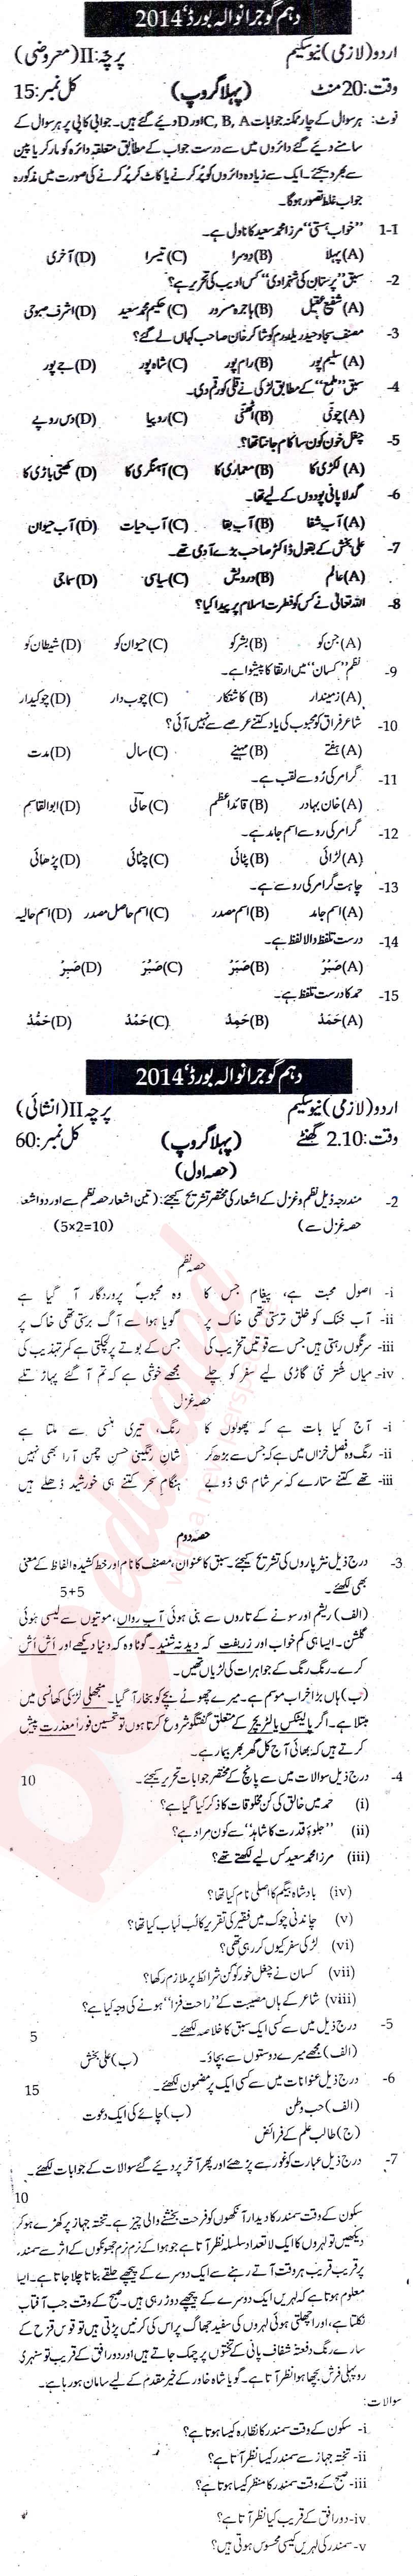 دہم گوجرانوالہ بورڈ، 2014
اردو (لازمی) نیو سکیم پرچہ: II (معروضی)
وقت: 20 منٹ (پہلا گروپ) کل نمبر: 15
نوٹ: ہر سوال کے چار ممکنہ جوابات C, B, A اور D دیئے گئے ہیں۔ جوابی کاپی پر ہر سوال کے
سامنے دیئے گئے دائروں میں سے درست جواب کے مطابق متعلقہ دائرہ کو مارکر یا پین
سے بھر دیجئے۔ ایک سے زیادہ دائروں کو پُر کرنے یا کاٹ کر پُر کرنے کی صورت میں مذکورہ
جواب غلط تصور ہوگا۔
1-1 "خواب ہستی" مرزا محمد سعید کا ناول ہے۔
(A) پہلا (B) دوسرا (C) تیسرا (D) آخری
2- سبق "پرستان کی شہزادی" کس ادیب کی تحریر ہے؟
(A) شفیع عقیل (B) ہاجرہ مسرور (C) حکیم محمد سعید (D) اشرف صبوحی
3- مصنف سجاد حیدر یلدرم کو شاکر خان صاحب کہاں لے گئے؟
(A) سلیم پور (B) رام پور (C) شاہ پور (D) جے پور
4- سبق "طمع" کے مطابق لڑکی نے قلی کو رقم دی۔
(A) چونی (B) اٹھنی (C) روپیا (D) دس روپے
5- چغل خور کون سا کام جانتا تھا؟
(A) لکڑی کا (B) معماری کا (C) آہنگری کا (D) کھیتی باڑی کا
6- گدلا پانی پودوں کے لیے تھا۔
(A) آب شفا (B) آب بقا (C) آب حیات (D) آب حیوان
7- علی بخش کے بقول ڈاکٹر صاحب بڑے آدمی تھے۔
(A) عالم (B) درویش (C) سیاسی (D) سماجی
8- اللہ تعالیٰ نے کس کو فطرت اسلام پر پیدا کیا؟
(A) جن کو (B) بشر کو (C) حیوان کو (D) شیطان کو
9- نظم "کسان" میں ارتقا کا پیشوا ہے۔
(A) زمیندار (B) کاشتکار (C) چوب دار (D) چوکیدار
10- شاعر فراق کو محبوب کی یاد کتنے عرصے سے نہیں آئی؟
(A) ہفتے (B) مہینے (C) سال (D) مدت
11- گرامر کی رُو سے لقب ہے۔
(A) خان بہادر (B) قائداعظم (C) حالی (D) ابوالقاسم
12- گرامر کی رو سے اسم جامد ہے۔
(A) لڑائی (B) پٹائی (C) چٹائی (D) پڑھائی
13- چاہت گرامر کی رو سے ہے۔
(A) اسم جامد (B) اسم مصدر (C) اسم حاصل مصدر (D) اسم حالیہ
14- درست تلفظ والا لفظ ہے۔
(A) (B) (C) (D)
15- حمد کا درست تلفظ ہے۔
(A) (B) (C) (D)
دہم گوجرانوالہ بورڈ، 2014
اردو (لازمی) نیو سکیم پرچہ II (انشائی)
وقت: 2.10 گھنٹے (پہلا گروپ) کل نمبر: 60
(حصہ اول)
2- مندرجہ ذیل نظم و غزل کے اشعار کی مختصر تشریح کیجئے: (تین اشعار حصہ نظم سے اور دو اشعار
حصہ غزل سے) (5×2=10)
حصہ نظم
i- اصول محبت ہے، پیغام جس کا وہ محبوبؐ پروردگار آ گیا ہے
ii- آب خنک کو خلق ترستی تھی خاک پر گویا ہوا سے آگ برستی تھی خاک پر
iii- سرنگوں رہتی ہیں جس سے قوتیں تخریب کی جس کے بوتے پر لچکتی ہے کمر تہذیب کی
iv- میاں شتر نئی گاڑی لیے سفر کو چلے مجھے خوشی ہے کہ تم آ گئے پہاڑ تلے
حصہ غزل
i- آج کیا بات ہے کہ پھولوں کا رنگ، تیری ہنسی سے ملتا ہے
ii- رنگ وہ فصل خزاں میں ہے کہ جس سے بڑھ کر شان رنگینی حسن چمن آرا بھی نہیں
iii- تھے کتنے ستارے کہ سر شام ہی ڈوبے ہنگام سحر کتنے ہی خورشید ڈھلے ہیں
حصہ دوم
3- درج ذیل نثر پاروں کی تشریح کیجئے۔ سبق کا عنوان، مصنف کا نام اور خط کشیدہ الفاظ کے معنی
بھی لکھئے۔ 5+5
(الف) ریشم اور سونے کے تاروں سے بنی ہوئی آب رواں، موتیوں سے لیسی ہوئی
گلشن۔ ایسا ہی کم خواب اور زربفت کہ دید نہ شنید۔ گوٹا وہ کہ دنیا دیکھے اور اُش اُش
کرے۔ رنگ رنگ کے جواہرات کی لڑیاں تھیں۔
(ب) ہاں بڑا خراب موسم ہے۔ میرے چھوٹے بچے کو بخار آ گیا۔ منجھلی لڑکی کھانسی میں
مبتلا ہے۔ اگر پالیٹکس یا لٹریچر کے متعلق گفتگو شروع کرتا ہوں تو تحسین فوراً معذرت پیش
کرتے ہیں کہ بھائی آج کل گھر بھر بیمار ہے۔
4- درج ذیل سوالات میں سے پانچ کے مختصر جوابات تحریر کیجئے۔ 10
(i) حمد میں خالق کی کن مخلوقات کا ذکر کیا گیا ہے؟
(ii) "جلوۂ قدرت کا شاہد" سے کون مراد ہے؟
(iii) مرزا محمد سعید کس لیے لکھتے تھے؟
(iv) بادشاہ بیگم کا اصلی نام کیا تھا؟
(v) چاندنی چوک میں فقیر کی تقریر کا لب لباب کیا تھا؟
(vi) لڑکی سفر کیوں کر رہی تھی؟
(vii) کسان نے چغل خور کو کن شرائط پر ملازم رکھا؟
(viii) شاعر کے ہاں مصیبت کے "راحت فزا" ہونے کی وجہ کیا ہے؟
5- درج ذیل میں سے کسی ایک سبق کا خلاصہ لکھئے۔ 5
(الف) مجھے میرے دوستوں سے بچاؤ۔ (ب) علی بخش
6- درج ذیل عنوانات میں سے کسی ایک پر مضمون لکھئے۔ 15
(الف) حب وطن (ب) چائے کی ایک دعوت
(ج) طالب علم کے فرائض
7- درج ذیل عبارت کو غور سے پڑھئے اور پھر آخر پر دیئے گئے سوالات کے جوابات لکھئے۔
10
سکون کے وقت سمندر کا دیدار آنکھوں کو فرحت بخشنے والی چیز ہے۔ تختہ جہاز پر کھڑے ہو کر
دیکھیں تو لہروں کا ایک لا تعداد سلسلہ نظر آتا ہے جو ہوا کے نرم نرم جھونکوں کے اثر سے سمندر
پر قریب قریب ہر وقت آتے رہنے سے ایک دوسرے کے پیچھے حلقے بناتا چلا جاتا ہے۔ ایسا
معلوم ہوتا ہے کہ لہریں ایک دوسرے کے پیچھے دوڑ رہی ہیں۔ صبح کے وقت جب آفتاب
نکلتا ہے، اور اچھلتی ہوئی لہروں کی سفید جھاگ پر اس کی کرنیں پڑتی ہیں تو قوس قزح کے
سارے رنگ دفعتہ شفاف پانی کے تختوں پر چمک جاتے ہیں اور دور افق کے قریب تو سنہری
روپہلی فرش بچھا ہوا نظر آتا ہے۔ گویا شاہ خاور کے خیر مقدم کے لیے سامان ہو رہا ہے۔
سوالات:
i- سکون کے وقت سمندر کا نظارہ کیسا ہوتا ہے؟
ii- تختہ جہاز سے سمندر کیسا نظر آتا ہے؟
iii- صبح کے وقت سمندر کا منظر کیسا ہوتا ہے؟
iv- دور افق کے قریب کیا نظر آتا ہے؟
v- سمندر کی لہریں کیسی محسوس ہوتی ہیں؟